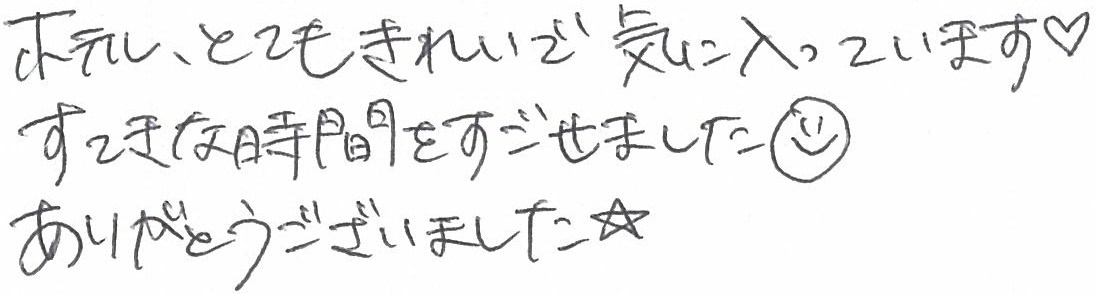 ホテル、とてもきれいで気に入っています♡
すてきな時間をすごせました☺
ありがとうございました☆